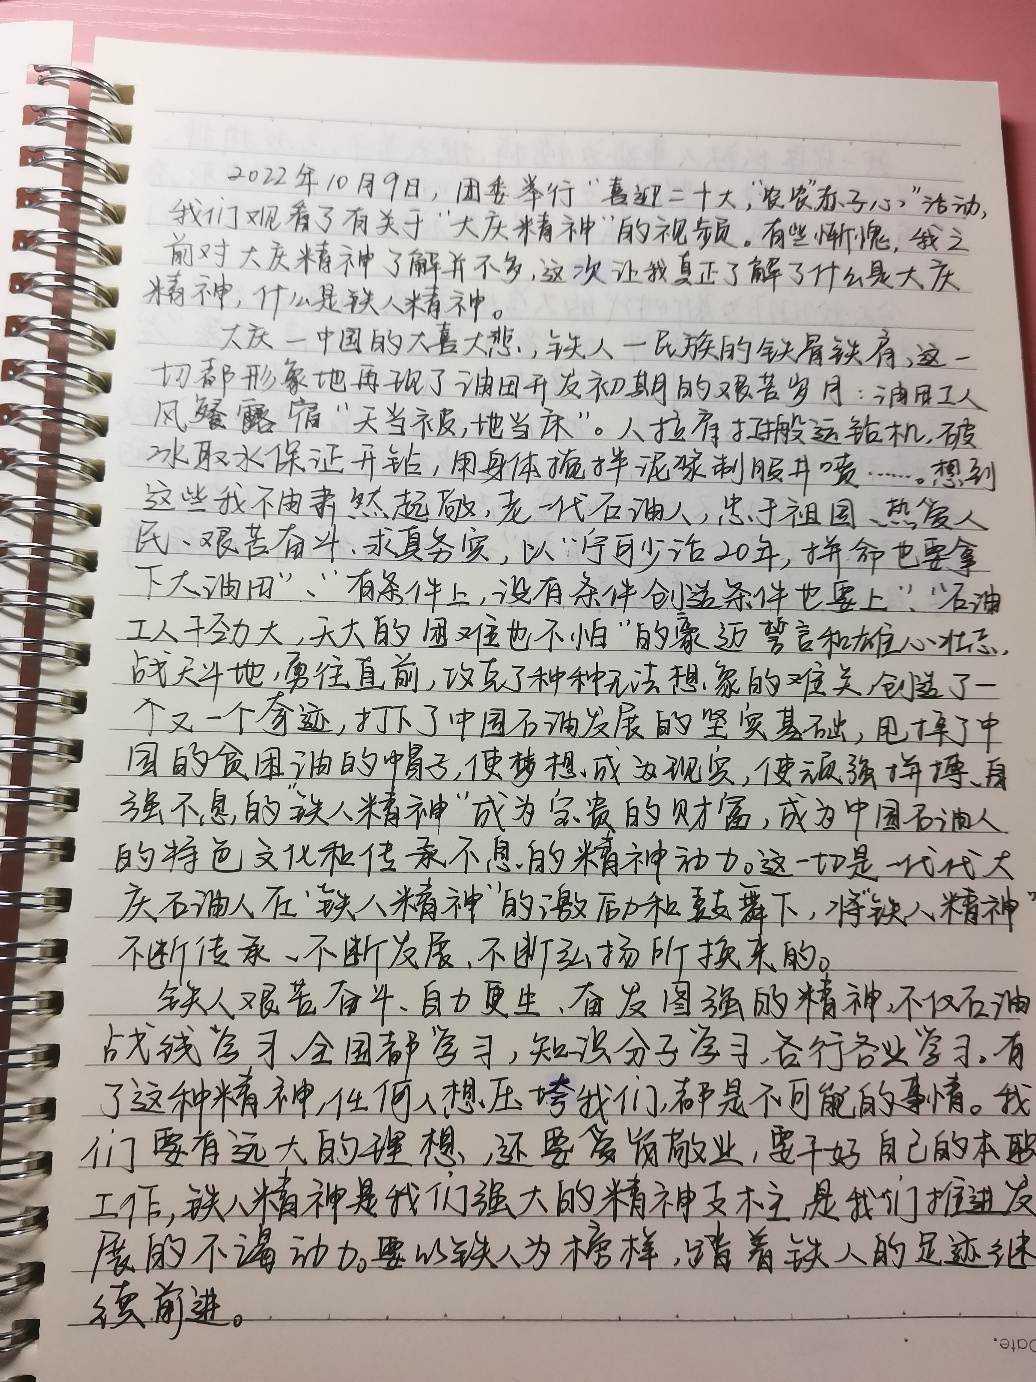 2022年10月9日，团委举行“喜迎二十大，“农农”赤子心”活动，
我们观看了有关于“大庆精神”的视频。有些惭愧，我之
前对大庆精神了解并不多，这次让我真正了解了什么是大庆
精神，什么是铁人精神。
大庆—中国的大喜大悲，铁人—民族的铁骨铁肩，这一
切都形象地再现了油田开发初期的艰苦岁月：油田工人
风餐露宿“天当被，地当床”。人拉肩扛搬运钻机，破
冰取水保证开钻，用身体搅拌泥浆制服井喷……。想到
这些我不由肃然起敬，老一代石油人，忠于祖国、热爱人
民、艰苦奋斗、求真务实，以“宁可少活20年，拼命也要拿
下大油田”、“有条件上，没有条件创造条件也要上”、“石油
工人干劲大，天大的困难也不怕”的豪迈誓言和雄心壮志，
战天斗地，勇往直前，攻克了种种无法想象的难关，创造了一
个又一个奇迹，打下了中国石油发展的坚实基础，甩掉了中
国的贫困油的帽子，使梦想成为现实，使顽强拼搏、自
强不息的“铁人精神”成为宝贵的财富，成为中国石油人
的特色文化和传承不息的精神动力。这一切是一代代大
庆石油人在“铁人精神”的激励和鼓舞下，将“铁人精神”
不断传承、不断发展、不断弘扬所换来的。
铁人艰苦奋斗、自力更生、奋发图强的精神，不仅石油
战线学习、全国都学习，知识分子学习，各行各业学习。有
了这种精神，任何人想压垮我们，都是不可能的事情。我
们要有远大的理想，还要爱岗敬业，要干好自己的本职
工作，铁人精神是我们强大的精神支柱，是我们推进发
展的不竭动力。要以铁人为榜样，踏着铁人的足迹继
续前进。
Date.